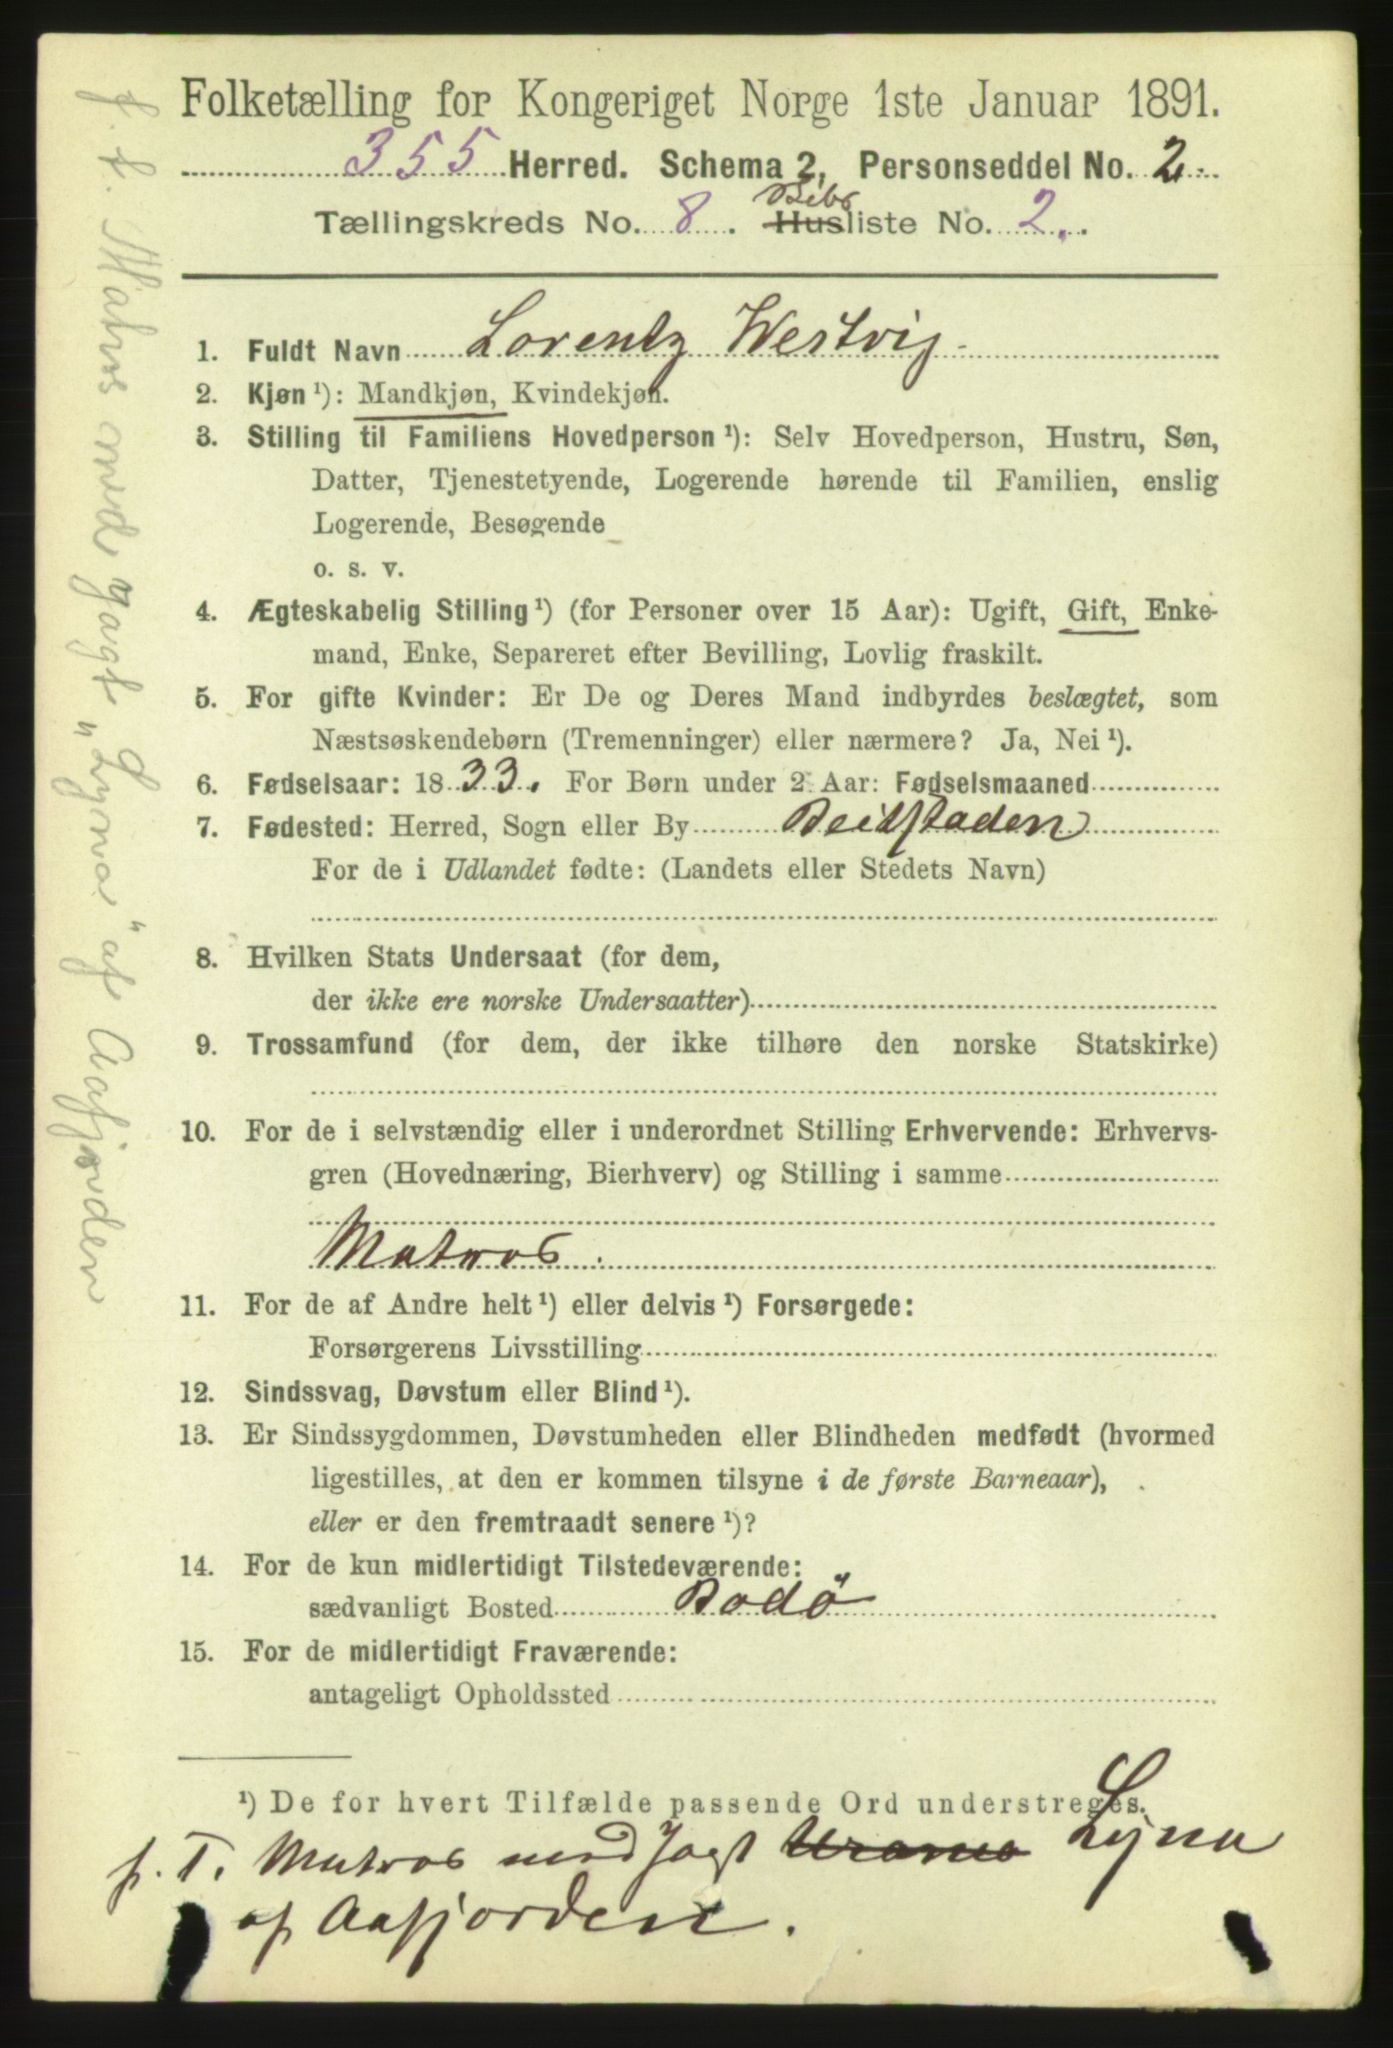 Folketælling for Kongeriget Norge 1ste Januar 1891.
355 Herred. Schema 2, Personseddel No. 2.
Tællingskreds No. 8. Husliste No. 2.
1. Fuldt Navn Lorentz Westvig
2. Kjøn ¹): Mandkjøn, Kvindekjøn.
3. Stilling til Familiens Hovedperson ¹): Selv Hovedperson, Hustru, Søn,
Datter, Tjenestetyende, Logerende hørende til Familien, enslig
Logerende, Besøgende
o. s. v.
4. Ægteskabelig Stilling ¹) (for Personer over 15 Aar): Ugift, Gift, Enke-
mand, Enke, Separeret efter Bevilling, Lovlig fraskilt.
5. For gifte Kvinder: Er De og Deres Mand indbyrdes beslægtet, som
Næstsøskendebørn (Tremenninger) eller nærmere? Ja, Nei ¹).
6. Fødselsaar: 1833. For Børn under 2 Aar: Fødselsmaaned
7. Fødested: Herred, Sogn eller By Beitstaden
For de i Udlandet fødte: (Landets eller Stedets Navn)
8. Hvilken Stats Undersaat (for dem,
der ikke ere norske Undersaatter)
9. Trossamfund (for dem, der ikke tilhøre den norske Statskirke)
10. For de i selvstændig eller i underordnet Stilling Erhvervende: Erhvervs-
gren (Hovednæring, Bierhverv) og Stilling i samme
Matros.
11. For de af Andre helt ¹) eller delvis ¹) Forsørgede:
Forsørgerens Livsstilling
12. Sindssvag, Døvstum eller Blind ¹).
13. Er Sindssygdommen, Døvstumheden eller Blindheden medfødt (hvormed
ligestilles, at den er kommen tilsyne i de første Barneaar),
eller er den fremtraadt senere ¹)?
14. For de kun midlertidigt Tilstedeværende:
sædvanligt Bosted Bodö
15. For de midlertidigt Fraværende:
antageligt Opholdssted
¹) De for hvert Tilfælde passende Ord understreges.
p. T. Matros med Jagt Lyna
af Aafjorden.
f. t. Matros med Jagt „Lyna" af Aafjorden